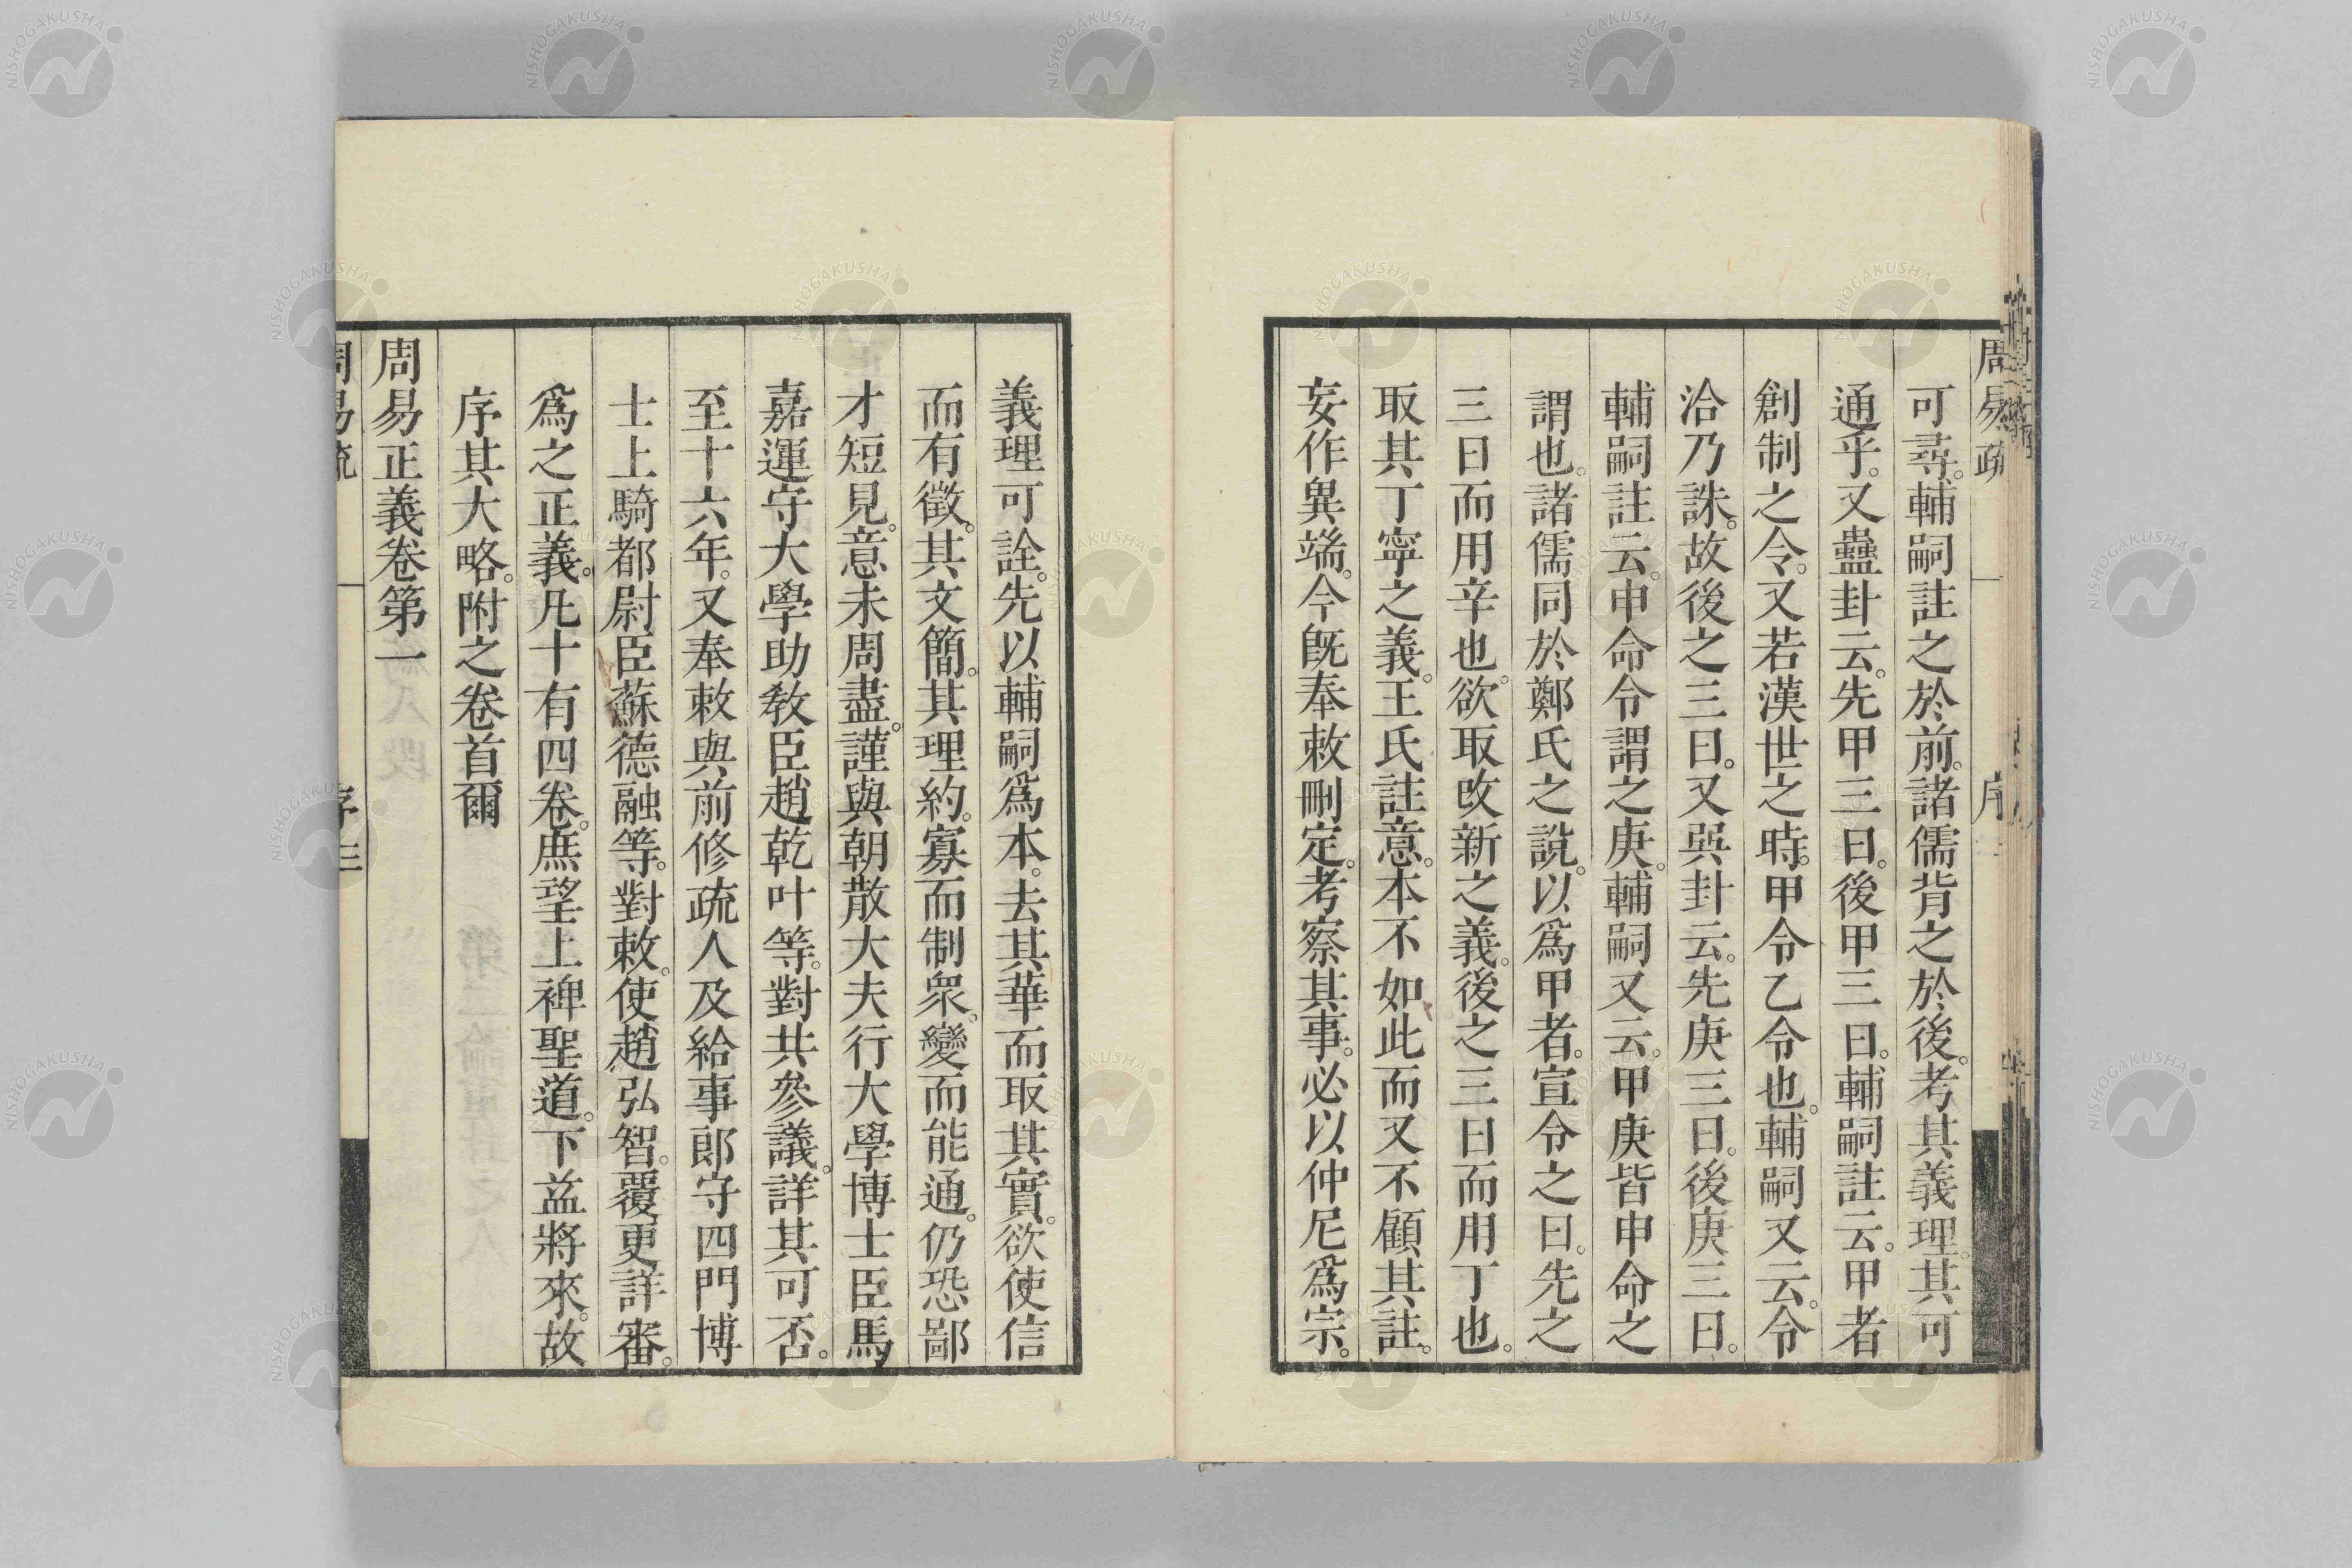 周易疏 序
可尋。輔嗣註之於前。諸儒背之於後。考其義理。其可
通乎。又蠱卦云。先甲三日。後甲三日。輔嗣註云。甲者
創制之令。又若漢世之時。甲令乙令也。輔嗣又云。令
洽乃誅。故後之三日。又巽卦云。先庚三日。後庚三日。
輔嗣註云。申命令謂之庚。輔嗣又云。甲庚皆申命之
謂也。諸儒同於鄭氏之說。以爲甲者。宣令之日。先之
三日而用辛也。欲取改新之義。後之三日而用丁也。
取其丁寧之義。王氏註意。本不如此而又不顧其註。
妄作異端。今既奉敕刪定。考察其事。必以仲尼爲宗。
義理可詮。先以輔嗣爲本。去其華而取其實。欲使信
而有徵。其文簡。其理約。寡而制衆。變而能通。仍恐鄙
才短見。意未周盡。謹與朝散大夫行大學博士臣馬
嘉運守大學助敎臣趙乾叶等。對共參議。詳其可否。
至十六年。又奉敕與前修疏人及給事郎守四門博
士上騎都尉臣蘇德融等。對敕。使趙弘智。覆更詳審。
爲之正義。凡十有四卷。庶望上裨聖道。下益將來。故
序其大略。附之卷首爾
周易正義卷第一
周易疏 序 三
NISHOGAKUSHA
NISHOGAKUSHA
NISHOGAKUSHA
NISHOGAKUSHA
NISHOGAKUSHA